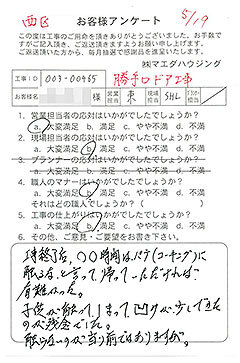 西区
お客様アンケート
5/19
この度は工事のご用命を頂きありがとうございました。お手数で
すがご記入頂き、ご返送頂きますようお願い申し上げます。
ご返送頂いた方から、毎月抽選で感謝品を進呈いたします。
㈱マエダハウジング
工事ID 003-00455 勝手口ドア工事
様 営業 東 現場 SHL プランナー
1. 営業担当者の応対はいかがでしたでしょうか?
a. 大変満足 b. 満足 c. やや不満 d. 不満
2. 現場担当者の応対はいかがでしたでしょうか?
a. 大変満足 b. 満足 c. やや不満 d. 不満
3. プランナーの応対はいかがでしたでしょうか?
a. 大変満足 b. 満足 c. やや不満 d. 不満
4. 職人のマナーはいかがでしたでしょうか?
a. 大変満足 b. 満足 c. やや不満 d. 不満
それはどの職人でしょうか?( )
5. 工事の仕上がりはいかがでしたでしょうか?
a. 大変満足 b. 満足 c. やや不満 d. 不満
6. その他、ご意見・ご要望をお書き下さい。
工事終了後、〇〇時間はパテ(コーキング)に
触るな と言って帰っていただければ
有難かった。
子供が触ってしまって凹みが少しできた
のが残念でした。
触らないのが当り前ではありますが。